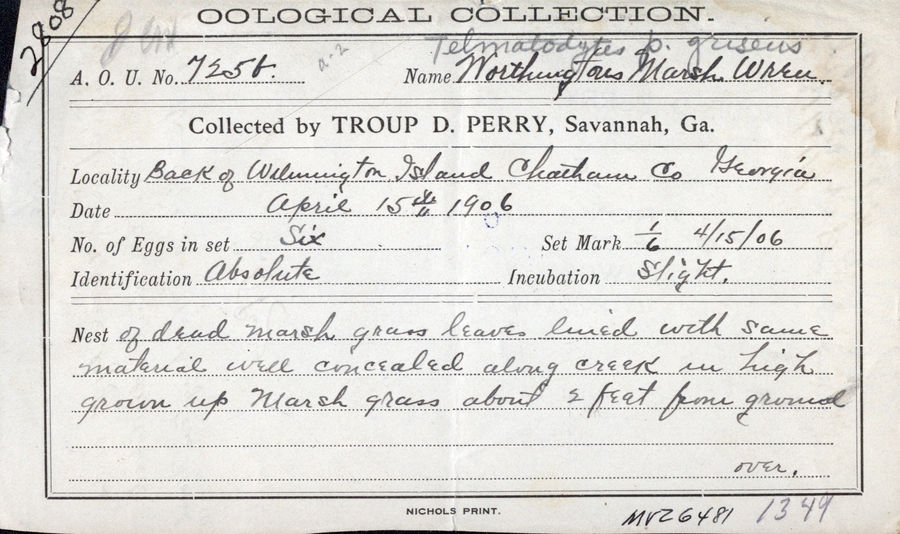 OOLOGICAL COLLECTION.
2808
a-2
Telmatodytes p. griseus
A. O. U. No. 725b. Name Worthingtons Marsh Wren
Collected by TROUP D. PERRY, Savannah, Ga.
Locality Back of Wilmington Island Chatham Co Georgia
Date April 15th 1906
No. of Eggs in set Six Set Mark 1/6 4/15/06
Identification Absolute Incubation Slight.
Nest of dead marsh grass leaves lined with same
material well concealed along creek in high
grown up Marsh grass about 2 feet from ground
over.
NICHOLS PRINT.
MVZ6481 1349